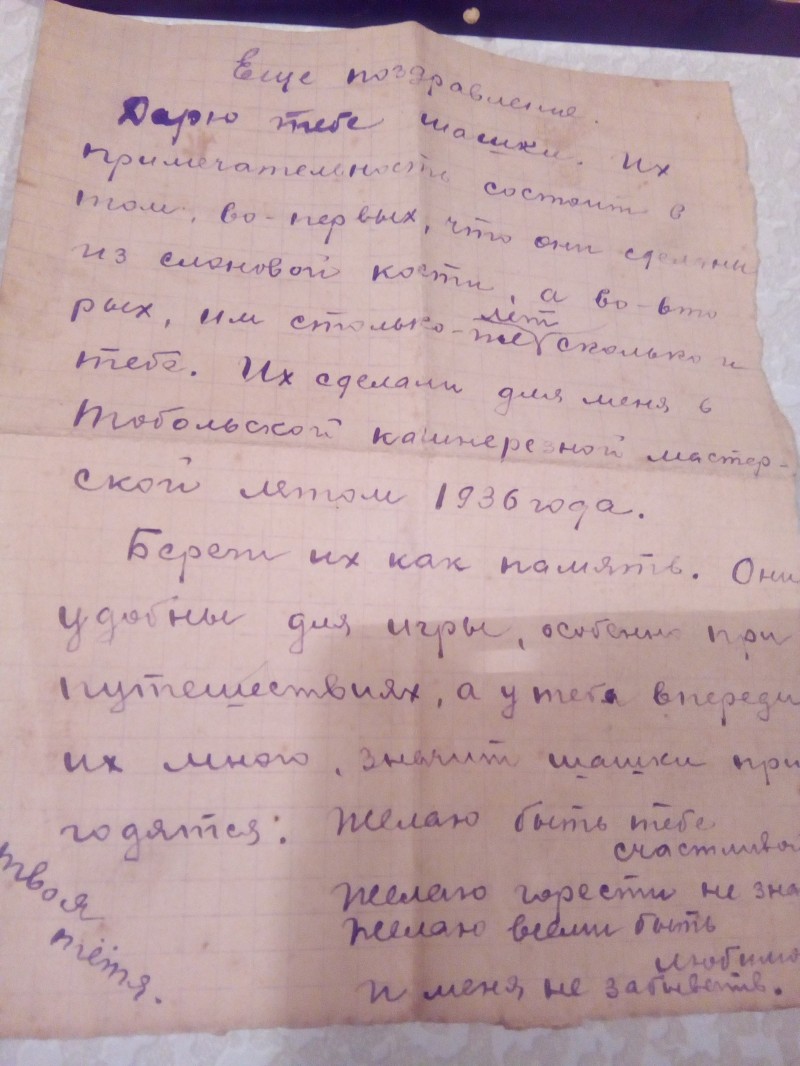 Еще поздравление.
Дарю тебе шашки. Их
примечательность состоит в
том, во-первых, что они сделаны
из слоновой кости, а во-вто
рых, им столько-лет сколько и
тебе. Их сделали для меня в
Тобольской камнерезной мастер-
ской лятом 1936 года.
Береги их как память. Они
удобны для игры, особенно при
путешествиях, а у тебя впереди
их много, значит шашки при
годятся:
Желаю быть тебе
счастливой
Желаю горести не зна
Желаю всеми быть
любимо
и меня не забывать.
твоя
тётя.